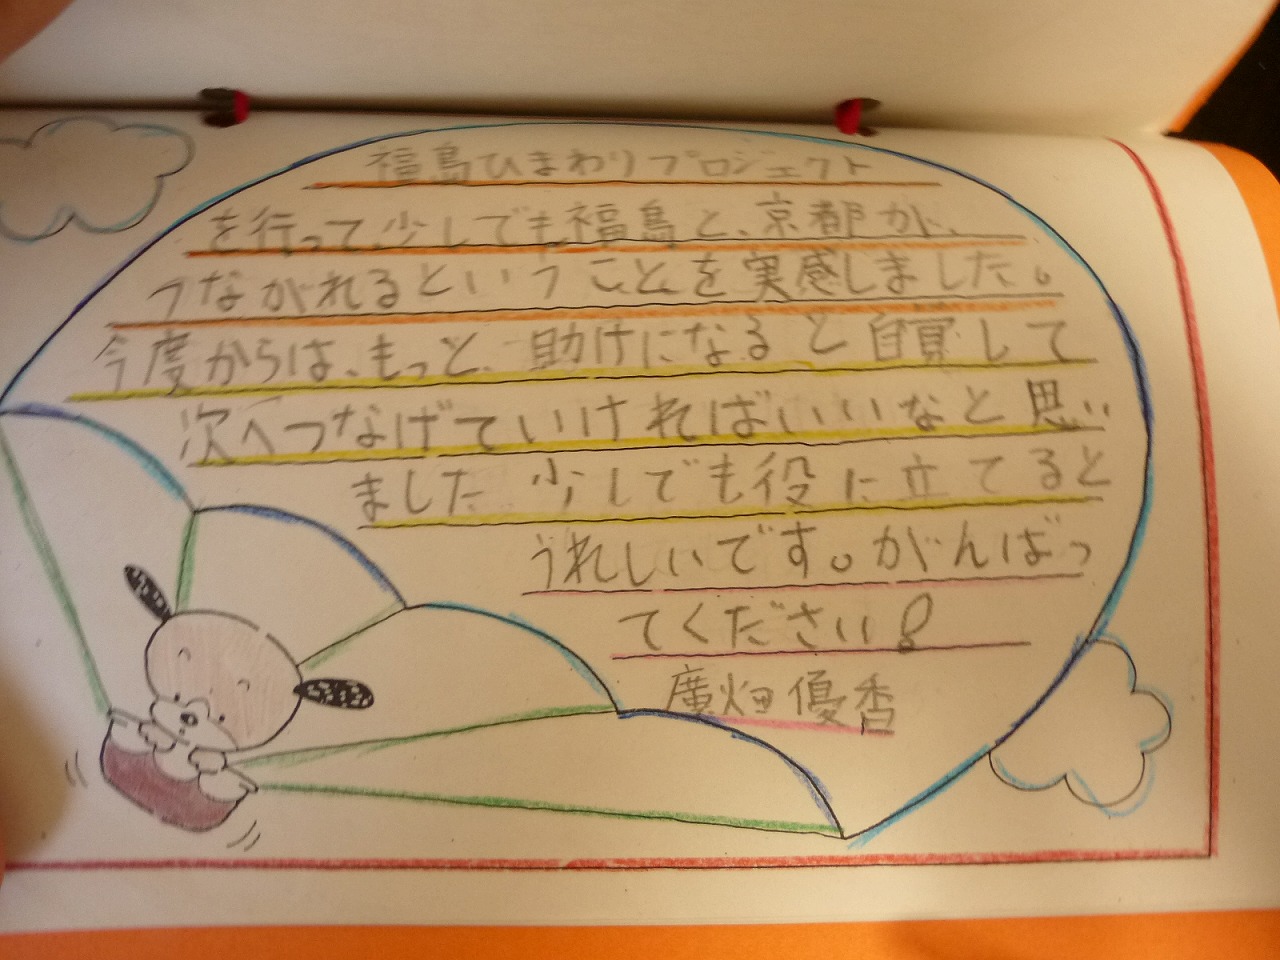 福島ひまわりプロジェクト
を行って、少しでも福島と、京都が、
つながれるということを実感しました。
今度からは、もっと、助けになると自覚して
次へつなげていければいいなと思い
ました 少しでも役に立てると
うれしいです。がんばっ
てください!
廣畑優香